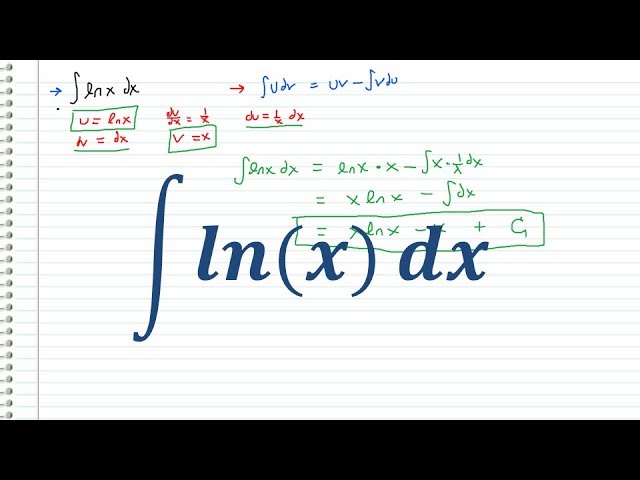 → ∫ ln x dx → ∫ u dv = uv − ∫ v du
u = ln x du/dx = 1/x du = 1/x dx
dv = dx v = x
∫ ln x dx = ln x • x − ∫ x • 1/x dx
= x ln x − ∫ dx
= x ln x − x + C
∫ ln(x) dx